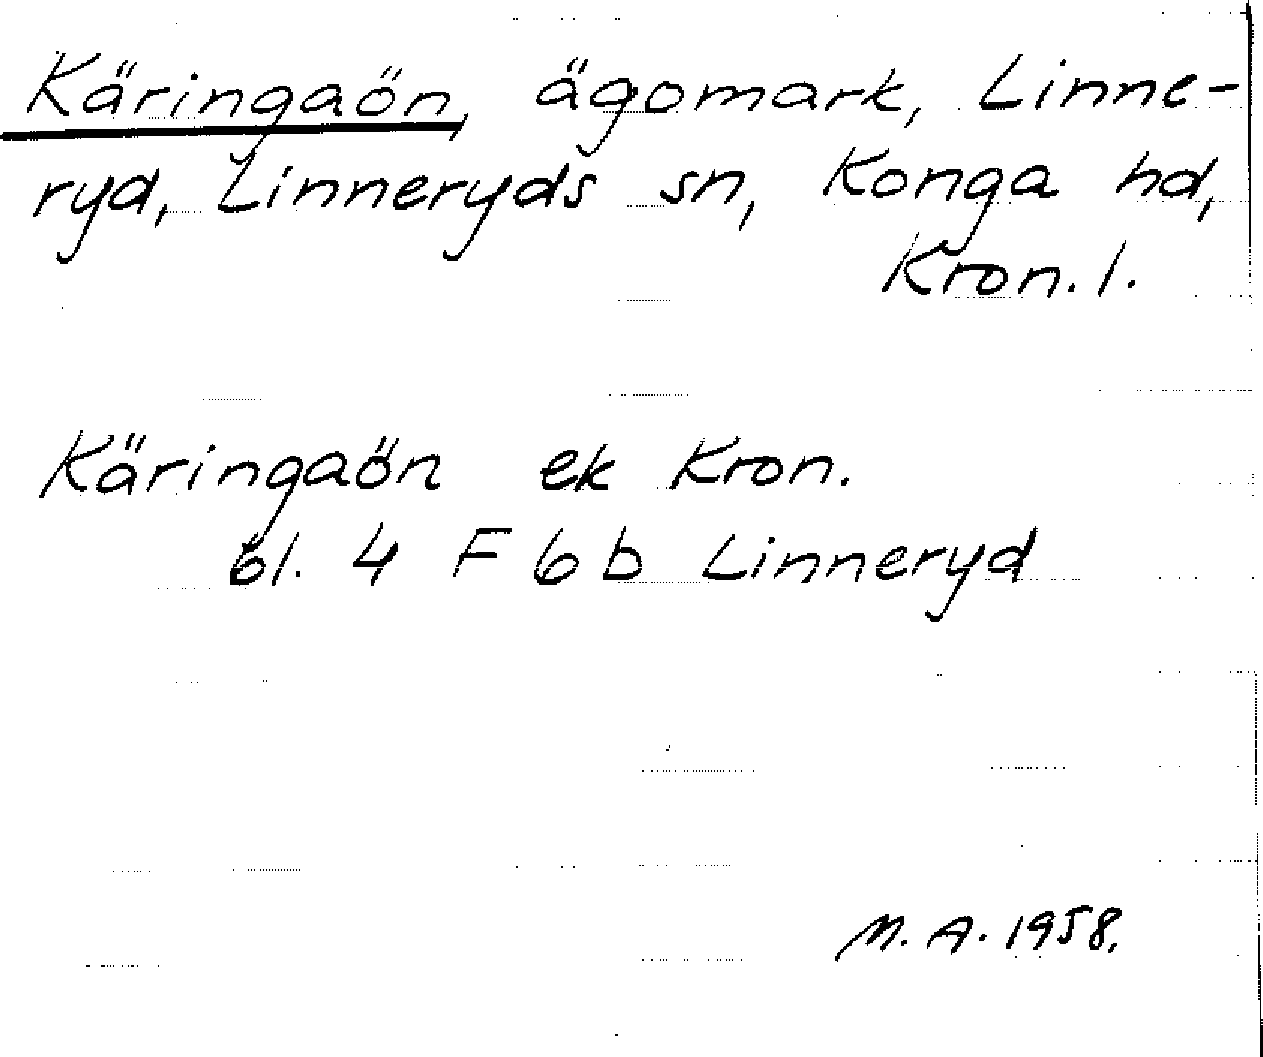 Käringaön, ägomark, Linne-
ryd, Linneryds sn, Konga hd,
Kron. l.
Käringaön ek Kron.
bl. 4 F 6 b Linneryd
M. A. 1958.